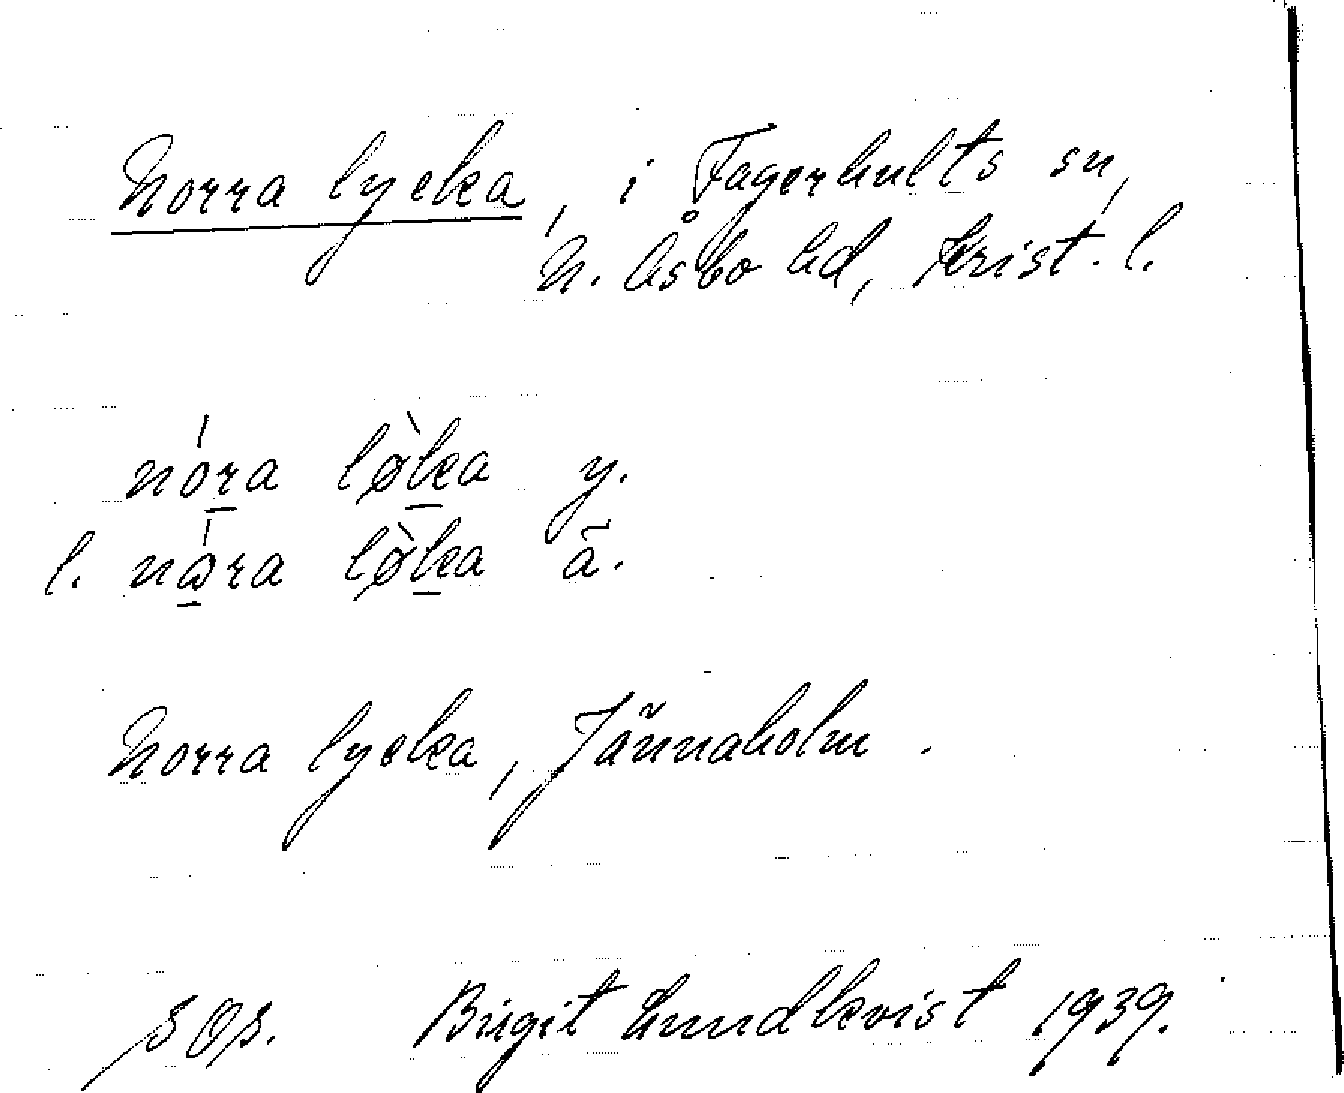 Norra lycka, i Fagerhults sn,
N. Åsbo hd, Krist. l.
nóra lø̀ka y.
l. nɷ́ra lø̀ka ä.
Norra lycka, Jännaholm.
Birgit Lundkvist 1939.